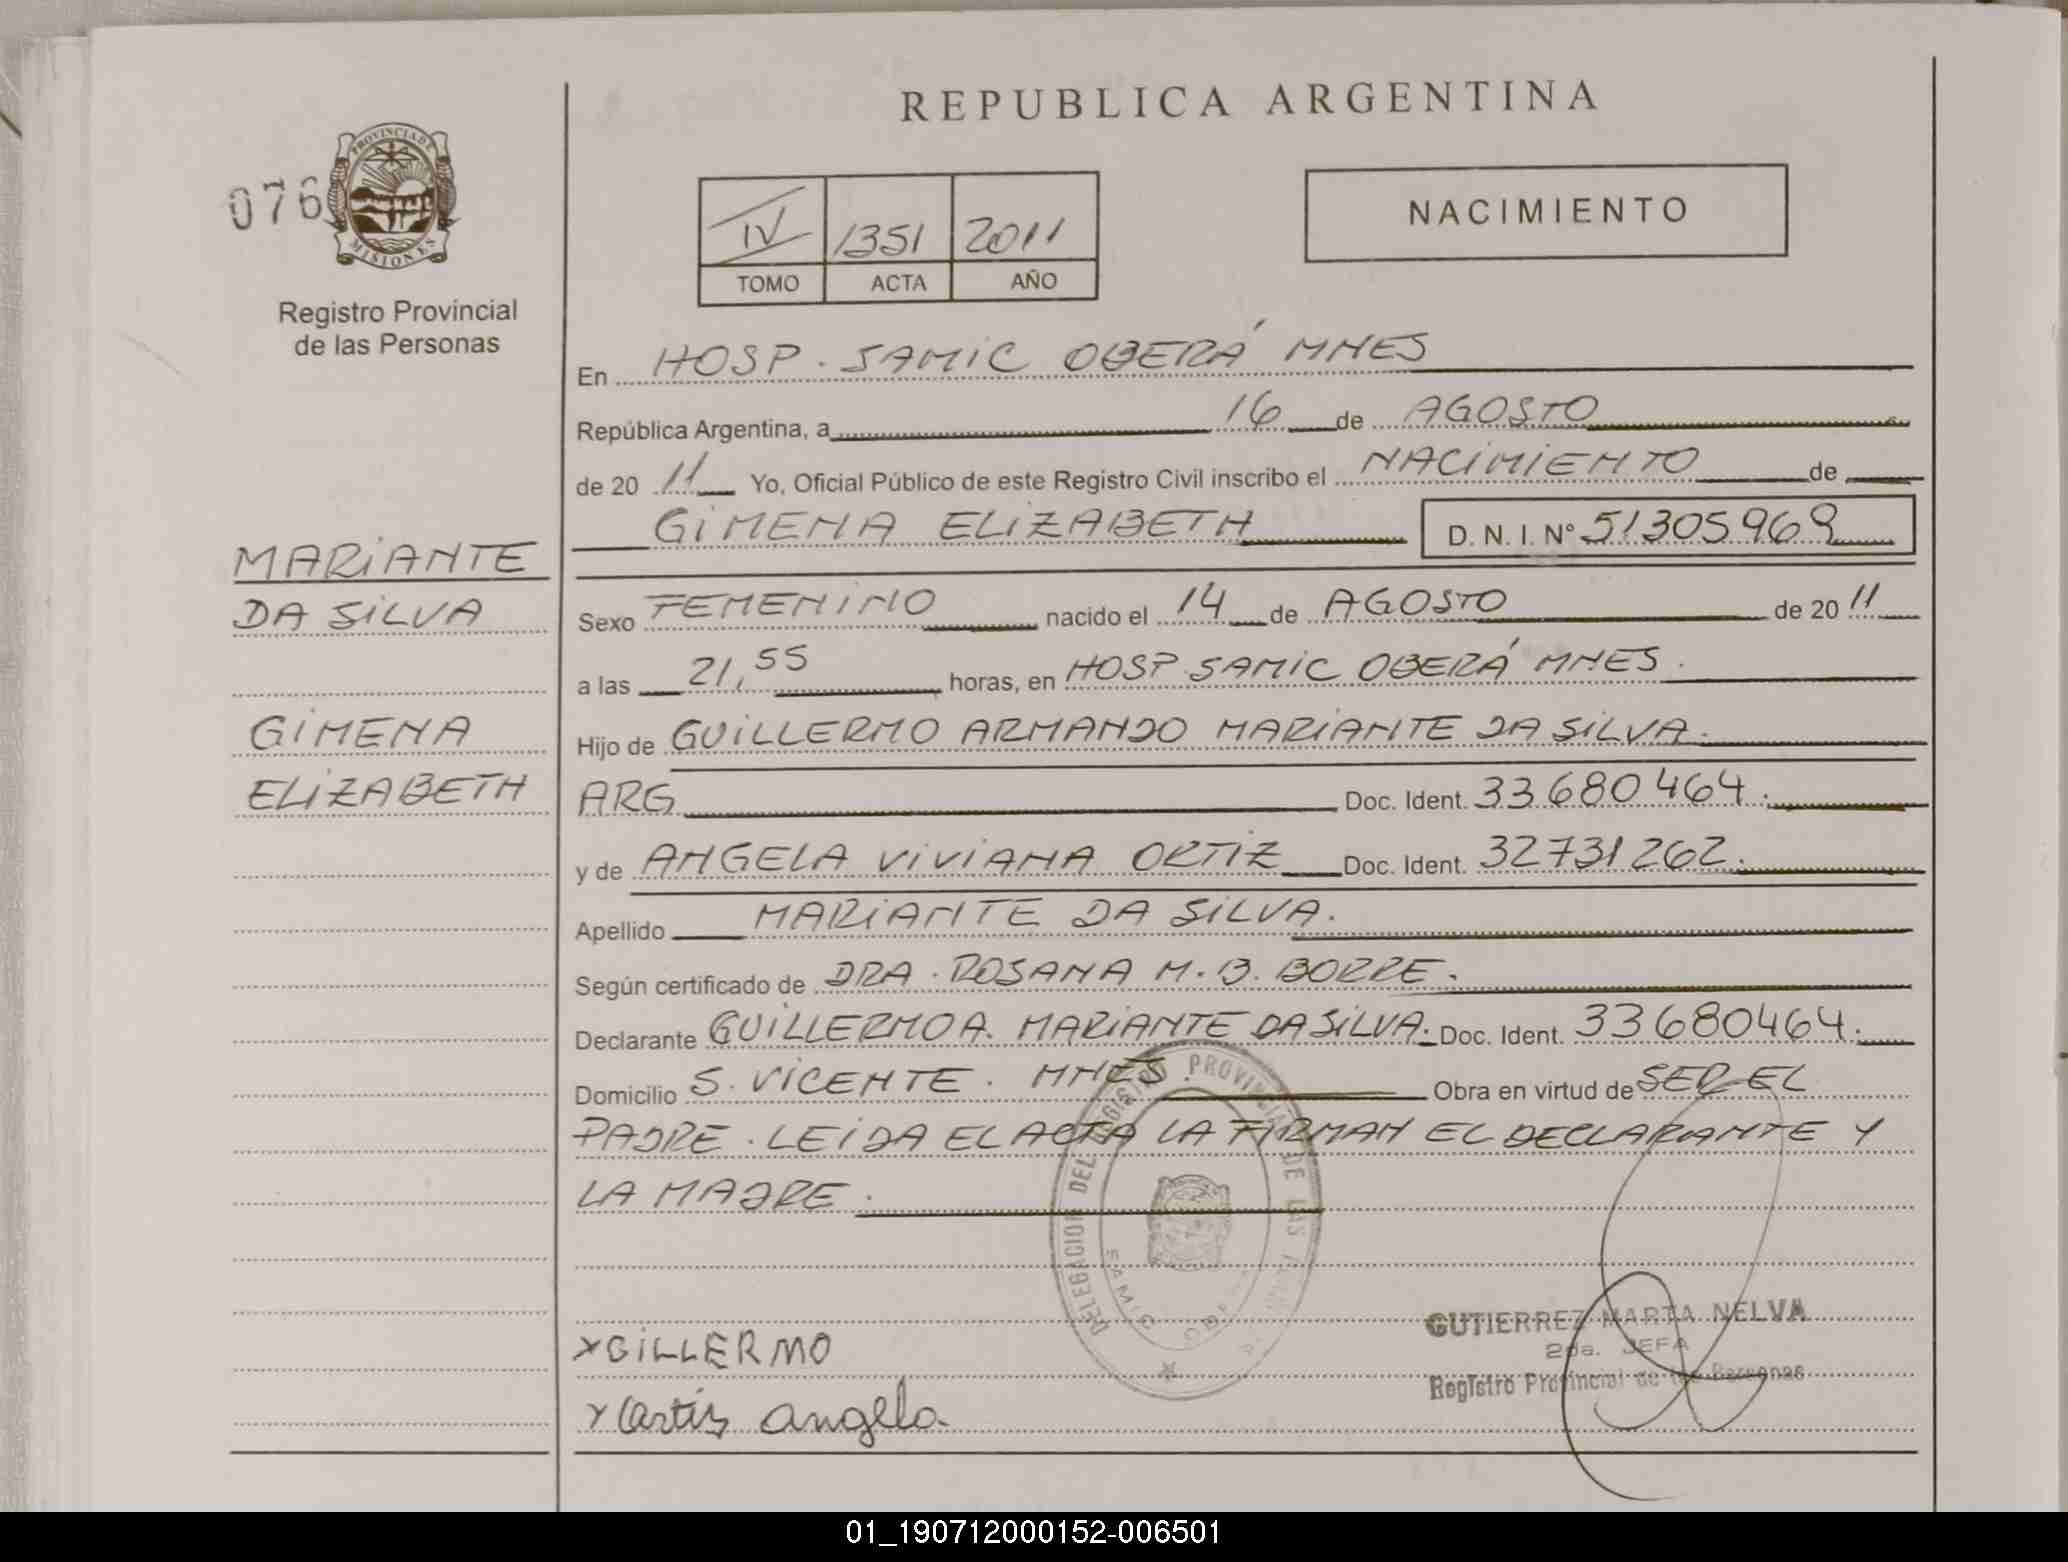 REPUBLICA ARGENTINA
076
PROVINCIA DE
MISIONES
Registro Provincial
de las Personas
IV 1351 2011
TOMO ACTA AÑO
NACIMIENTO
En HOSP. SAMIC OBERÁ MNES
República Argentina, a 16 de AGOSTO
de 20 11 Yo, Oficial Público de este Registro Civil inscribo el NACIMIENTO de
GIMENA ELIZABETH D. N. I. Nº 51305969
MARIANTE
DA SILVA
GIMENA
ELIZABETH
Sexo FEMENINO nacido el 14 de AGOSTO de 20 11
a las 21,55 horas, en HOSP SAMIC OBERÁ MNES.
Hijo de GUILLERMO ARMANDO MARIANTE DA SILVA.
ARG Doc. Ident. 33680464.
y de ANGELA VIVIANA ORTIZ Doc. Ident. 32731262.
Apellido MARIANTE DA SILVA.
Según certificado de DRA. ROSANA M. B. BORRE.
Declarante GUILLERMO A. MARIANTE DA SILVA. Doc. Ident. 33680464.
Domicilio S. VICENTE. MNES. Obra en virtud de SER EL
PADRE. LEIDA EL ACTA LA FIRMAN EL DECLARANTE Y
LA MADRE.
DELEGACION DEL REGISTRO PROVINCIAL DE LAS
SAMIC
x GILLERMO
GUTIERREZ MARTA NELVA
2da. JEFA
Registro Provincial de las Personas
angela
01_190712000152-006501